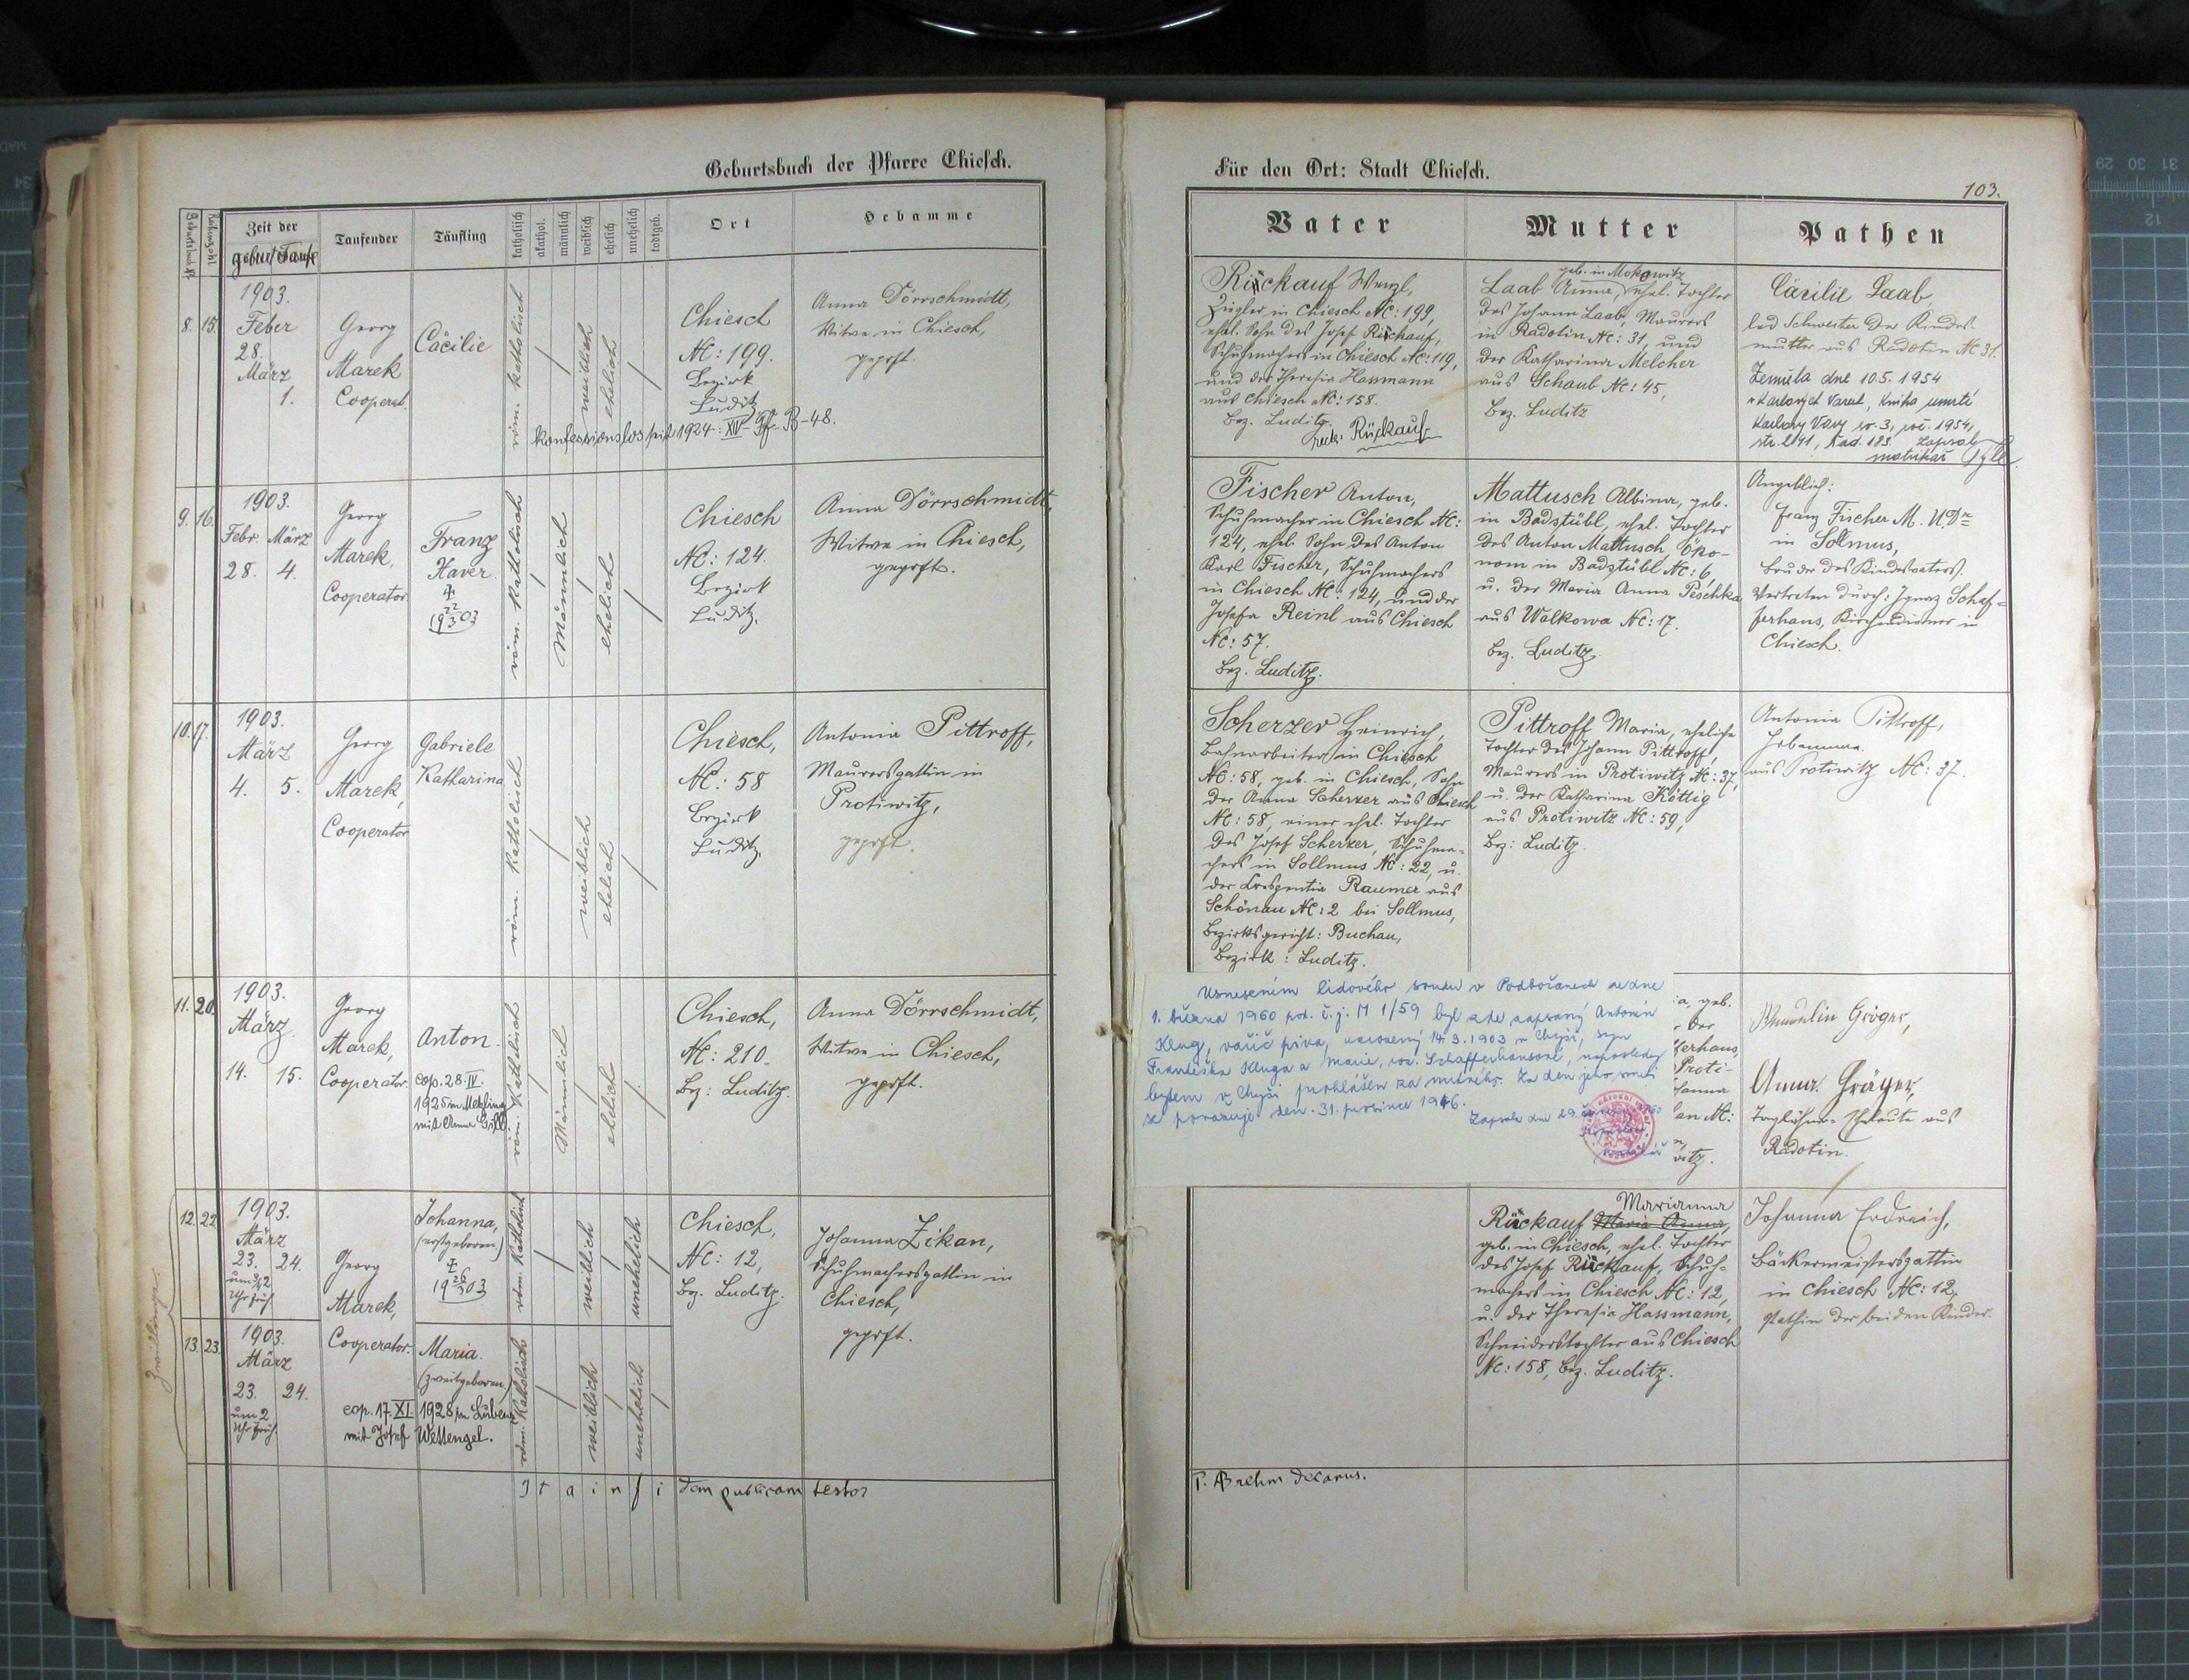 Geburtsbuch der Pfarre Chiesch.
Zeit der
Geburt Taufe
Taufender
Täufling
katholisch
akathol.
männlich
weiblich
ehelich
unehelich
todtgeb.
Ort
Hebamme
8. 15.
1903.
Feber
28.
März
1.
Georg
Marek
Cooperat.
Cäcilie
röm. katholisch
weiblich
ehelich
Chiesch
NC: 199.
Bezirk
Luditz
konfessionslos seit 1924:
Anna Dörrschmidt,
Witwe in Chiesch,
geprft.
9. 16.
1903.
Febr. März
28. 4.
Georg
Marek,
Cooperator.
Franz
Xaver.
röm. katholisch
Männlich
ehelich
Chiesch
NC: 124.
Bezirk
Luditz.
Anna Dörrschmidt,
Witwe in Chiesch,
geprft.
10. 17.
1903.
März
4. 5.
Georg
Marek,
Cooperator
Gabriele
Katharina
röm. katholisch
weiblich
ehelich
Chiesch,
NC: 58
Bezirk
Luditz.
Antonia Pittroff,
Maurersgattin in
Protiwitz,
geprft.
11. 20.
1903.
März
14. 15.
Georg
Marek,
Cooperator.
Anton.
cop. 28. IV.
röm. katholisch
Männlich
ehelich
Chiesch,
NC: 210.
Bez: Luditz.
Anna Dörrschmidt,
Witwe in Chiesch,
geprft.
Zwillinge
12. 22.
1903.
März
23. 24.
Uhr früh
Georg
Marek,
Cooperator.
Johanna,
(erstgeboren)
röm. katholisch
weiblich
unehelich
Chiesch,
NC: 12,
Bez. Luditz.
Johanna Zikan,
Schuhmachersgattin in
Chiesch,
geprft.
13. 23.
1903.
März
23. 24.
um 2
Uhr früh.
Maria.
(zweitgeboren)
cop. 17. XI. 1928 in
mit Josef Wettengel.
röm. katholisch
weiblich
unehelich
Ita in fidem publicam testor
Für den Ort: Stadt Chiesch.
103.
Vater
Mutter
Pathen
Rückauf Wenzl,
Ziegler in Chiesch NC: 199,
ehel. Sohn des Josef Rückauf,
Schuhmachers in Chiesch NC: 119,
und der Theresia Hassmann
aus Chiesch NC: 158.
Bez. Luditz.
recte: Rückauf
geb. in Mokowitz
Laab Anna, ehel. Tochter
des Johann Laab, Maurers
in Radotin NC: 31, und
der Katharina Melcher
aus Schaub NC: 45,
Bez. Luditz
Cäcilie Laab,
led Schwester der Kindes-
mutter aus Radotin NC 31.
Zemřela dne 10.5. 1954
v Karlových Varech, kniha úmrtí
Karlovy Vary sv. 3, roč. 1954,
matrikář
Fischer Anton,
Schuhmacher in Chiesch NC:
124, ehel. Sohn des Anton
Karl Fischer, Schuhmachers
in Chiesch NC: 124, und der
Josefa Reinl aus Chiesch
NC: 57.
Bez. Luditz.
Mattusch Albina, geb.
in Badstübl, ehel. Tochter
des Anton Mattusch, Öko-
nom in Badstübl NC: 6,
u. der Maria Anna Peschka
aus Walkowa NC: 17.
Bez. Luditz.
Angeblich:
Franz Fischer M. U. Dr
in Sollmus,
Bruder des Kindesvaters.
Vertreten durch: Ignaz Schaf-
ferhans, Kirchendiener in
Chiesch.
Scherzer Heinrich,
Bahnarbeiter in Chiesch
NC: 58, geb. in Chiesch, Sohn
der Anna Scherzer aus Chiesch
NC: 58, einer ehel. Tochter
des Josef Scherzer, Schuhma-
chers in Sollmus NC: 22, u.
der Kreszentia Raumer aus
Schönau NC: 2 bei Sollmus,
Bezirksgericht: Buchau,
Bezirk: Luditz.
Pittroff Maria, eheliche
Tochter des Johann Pittroff,
Maurers in Protiwitz NC: 37,
u. der Katharina Köttig
aus Protiwitz NC: 59,
Bez: Luditz.
Antonia Pittroff,
Hebamme
aus Protiwitz NC: 37.
Usnesením lidového soudu v Podbořanech ze dne
1. března 1960 pod. č.j. M 1/59 byl zde zapsaný Antonín
Klug, vařič piva, narozený 14.3.1903 v Chyši, syn
Františka Kluga a Marie, roz. Schafferhansové, naposledy
bytem v Chyši prohlášen za mrtvého. Za den jeho smrti
se považuje den 31. prosince 1946.
Zapsáno dne 29.
a, geb.
der
ferhans,
Proti-
an NC:
witz.
Gröger,
Anna Gräger,
Taglöhner-Eheleute aus
Radotin.
Marianna
Rückauf Maria Anna,
geb. in Chiesch, ehel. Tochter
des Josef Rückauf, Schuh-
machers in Chiesch NC: 12,
u. der Theresia Hassmann,
Schneiderstochter aus Chiesch
NC: 158, Bez. Luditz.
Johanna Erdreich,
Bäckermeistersgattin
in Chiesch NC: 12,
Pathin der beiden Kinder.
P. Brehm Decanus.